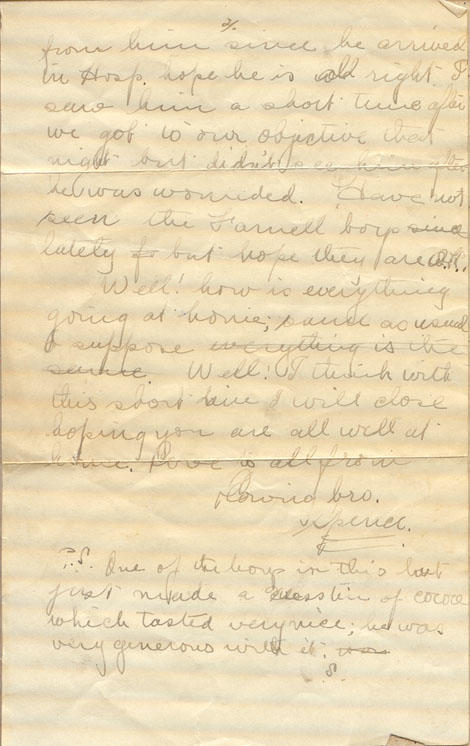 2/.
from him since he arrived
in Hosp. hope he is all right. I
saw him a short time after
we got to our objective that
night but didn't see him after
he was wounded. Have not
seen the Farnell boys since
lately but hope they are O.K.
Well! how is everything
going at home; same as usual
I suppose everything is the
same. Well! I think with
this short line I will close
hoping you are all well at
home. Love is all from
Loving bro.
Spence.
P.S. One of the boys in this hut
just made a mess tin of cocoa
which tasted very nice; he was
very generous with it.
S.